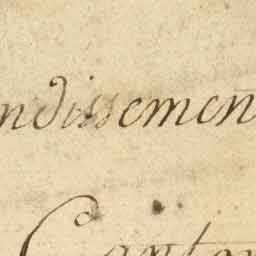 ndissemen
Canton